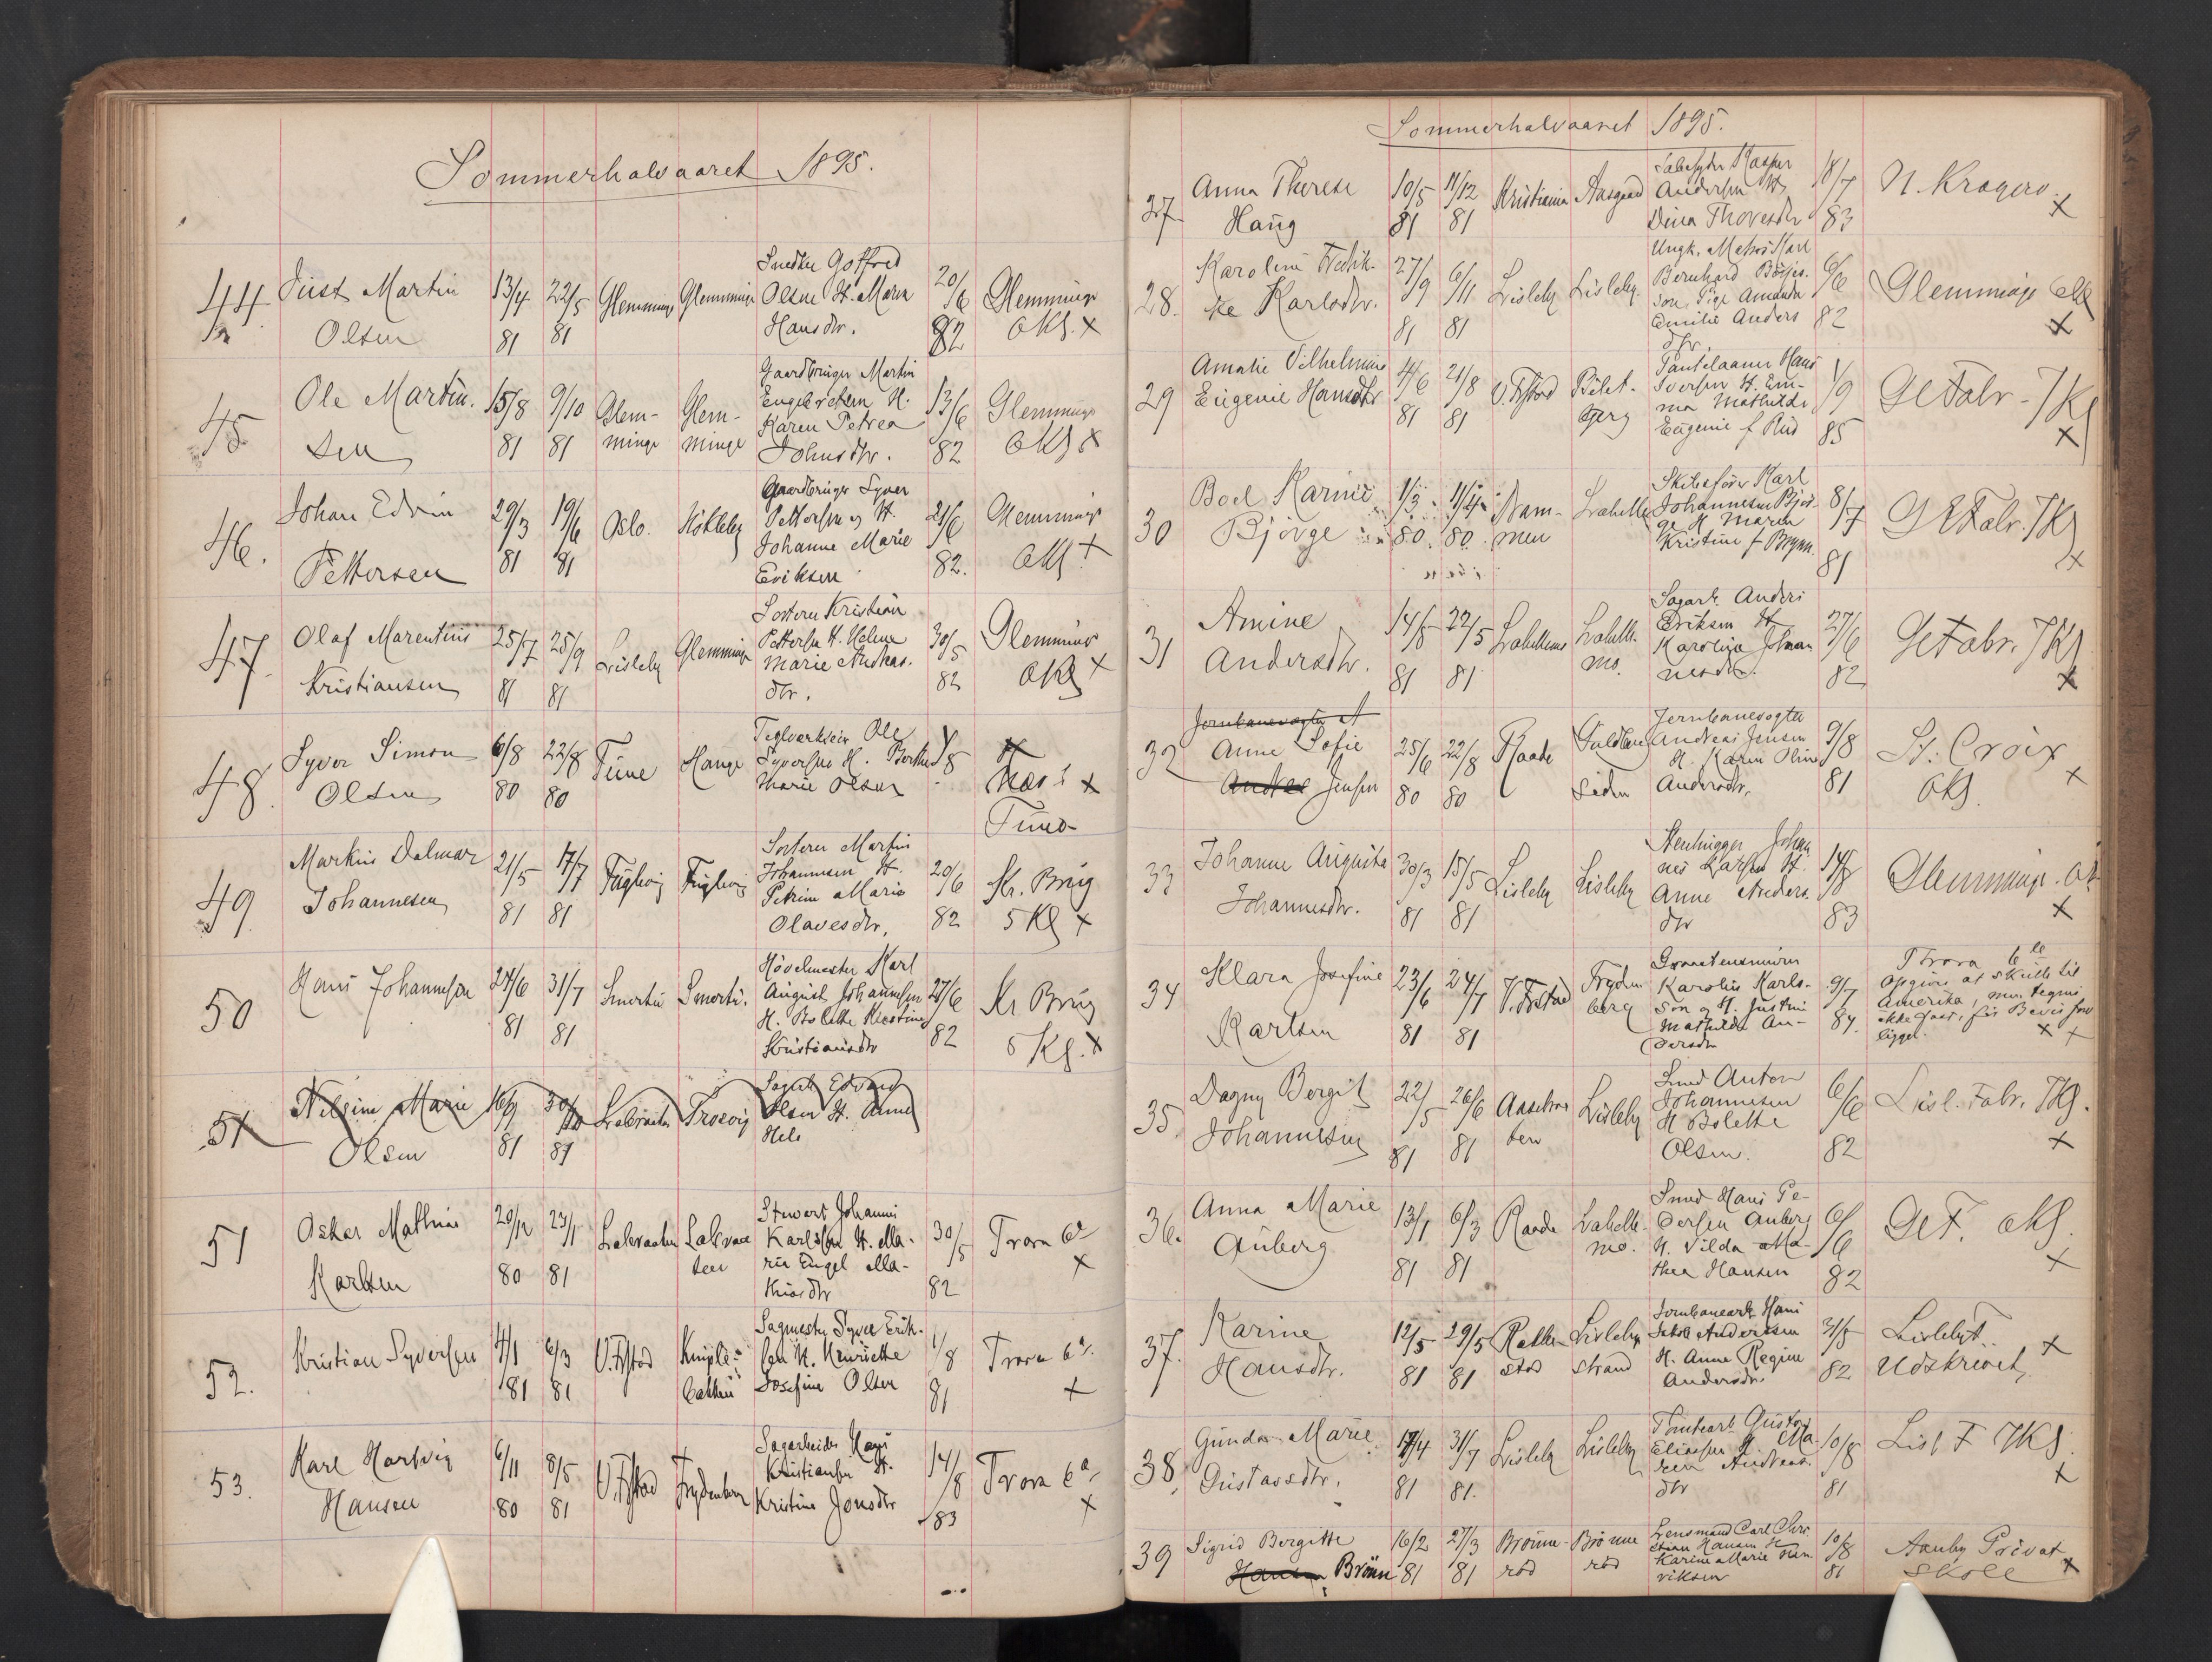 Sommerhalvaaret 1895.
44. Just Martin Olsen 13/4 81 22/5 81 Glemminge Glemminge Snedker Gotfred Olsen H. Maren Hansdtr. 20/6 82 Glemminge 6 Kl. x
45 Ole Martinsen 15/8 81 9/10 81 Glemminge Glemminge Gaardbruger Martin Engebretsen H. Karen Petrea Johnsdtr. 13/6 82 Glemminge 6 Kl x
46. Johan Edvin Pettersen 29/3 81 19/6 81 Oslo. Gaardbruger Syver Pettersen og H. Johanne Marie Eriksen 21/6 82. Glemminge 6 Kl x
47. Olaf Marentius Kristiansen 25/7 81 25/9 81 Lisleby Glemminge Sorterer Kristian Pettersen H. Helene Marie Andreasdtr. 30/5 82 Glemminge 6 Kl x
48. Syver Simon Olsen 6/8 80 22/8 80 Tune Hauge Teglverkseier Ole Syversen H. Berthe Marie Olsen Tune x
49. Markus Dalmar Johannesen 21/5 81 17/7 81 Fuglevig Fuglevig Sorterer Martin Johannesen H. Petrine Marie Olavesdtr. 20/6 82 Kr. Brug 5 Kl x
50 Hans Johannesen 24/6 81 31/7 81 Smertu Smertu. Høvelmester Karl August Johannesen H. Bolette Kirstine Kristiansdtr 27/6 82 Kr Brug 5 Kl. x
51 Nilsine Marie Olsen 16/9 81 30/10 81 Trosvig Sagarb Edvard Olsen H. Anne Hels
51 Oskar Mathias Karlsen 20/12 80 23/1 81 Labraaten Labraaten Stuert Johannes Karlsen H. Marie Engel Mathiasdtr 30/5 82 Trara 6a x
52. Kristian Syversen 4/1 81 6/3 81 V. Fstad Kniplebakken Sagmester Syver Eriksen H. Henriette Josefine Olsen 1/8 81 Trara 6a. x
53. Karl Hartvig Hansen 6/11 80 8/5 81 V. Fstad Frydenberg Sagarbeider Hans Kristiansen H. Kristine Jonsdtr 14/8 83 Trara 6a x
Sommerhalvaaret 1895.
27 Anna Therese Haug 10/5 81 11/12 81 Kristiania Aasgaard Kasper Andersen H. Dina Thoresdtr 18/7 83 N. Kragerø x
28. Karoline Fredrikke Karlsdtr. 27/9 81 6/11 81 Lisleby Lisleby. Ungk. Matros Karl Bernhard Børjeson, Pige Amanda Emilie Andersdtr. 6/6 82 Glemminge 6 Kl x
29 Amalie Vilhelmine Eugenie Hansdtr 4/6 81 21/8 81 V. Fstad Biletberg Pantelaaner Hans Iversen H. Emma Mathilde Eugenie f Rud 1/9 85 Gl. Fabr. 7 Kl x
30 Boel Karine Bjørge 1/3 80. 11/4 80. Drammen Skibsfører Karl Johannesen Bjørge H. Maren Kristine f Brynn. 8/7 81 Gl Fabr. 7 Kl x
31 Amine Andersdtr. 14/5 81 22/5 81 Labellmo. Sagarb. Anders Eriksen H. Karoline Johannesdtr. 27/6 82 Gl Fabr. 7 Kl x
Jernbanevogter A
32 Anne Sofie Andrea Jensen 25/6 80 22/8 80 Raade Jernbanevogter Andreas Jensen H. Karen Oline Andersdtr. 9/8 81 St. Croix 6 Kl. x
33 Johanne Augusta Johannesdtr. 30/3 81 15/5 81 Lisleby Lisleby Stenhugger Johannes Larsen H. Anne Andersdtr 14/8 83 Glemminge. 6 Kl x
34 Klara Josefine Karlsen 23/6 81 24/7 81 V. Fstad Frydenberg Karolus Karlsen og H. Justine Mathilde Andersdtr 9/7 84. Trara 6te Opgives at skulle til Amerika, men regnes ikke fast, før Bevis foreligger. x x
35. Dagny Bergit Johannesen 22/5 81 26/6 81 Lisleby Smed Anton Johannesen H Bolette Olsen. 6/6 82 Lisl. Fabr. 7 Kl. x
36. Anna Marie Auberg 13/1 81 6/3 81 Raade Labellmo. Smed Hans Pedersen Auberg H. Vilda Mathea Hansen 6/6 82 Gl F. 6 Kl. x
37. Karine Hansdtr. 12/5 81 29/5 81 Rakkestad Lisleby strand Jernbanearb. Hans Jakob Andersen H. Anne Regine Andersdtr. 31/5 82 Lisleby F. Udskrevet x
38. Gunda Marie Gustavsdtr. 17/4 81 31/7 81. Lisleby Lisleby Tomtearb Gustav Eliassen H. Maren Andreasdtr 10/8 81 Lisl F 7 Kl. x
39 Sigrid Bergitte Hansen Brønn 16/2 81 27/3 81 Brønnerød Brønnerød Lensmand Carl Christian Hansen H Karine Marie Henriksen 10/8 81 Aanby Privat skole x